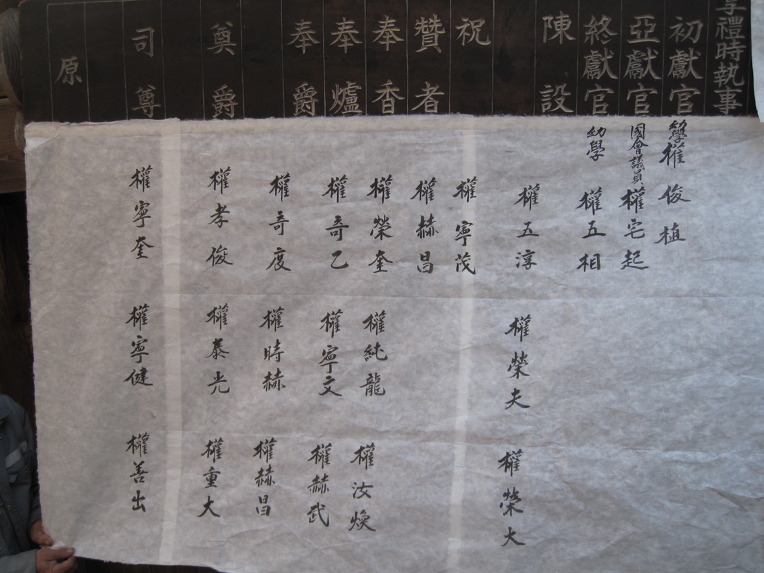 享禮時執事
初獻官
亞獻官
終獻官
陳設
祝
贊者
奉香
奉爐
奉爵
奠爵
司尊
原
權俊植
國會議員 權宅起
幼學 權五相
權五淳
權榮夫
權榮大
權寧茂
權赫昌
權榮奎
權純龍
權汝煥
權奇乙
權寧文
權赫武
權奇度
權時赫
權赫昌
權孝俊
權泰光
權重大
權寧奎
權寧健
權善出